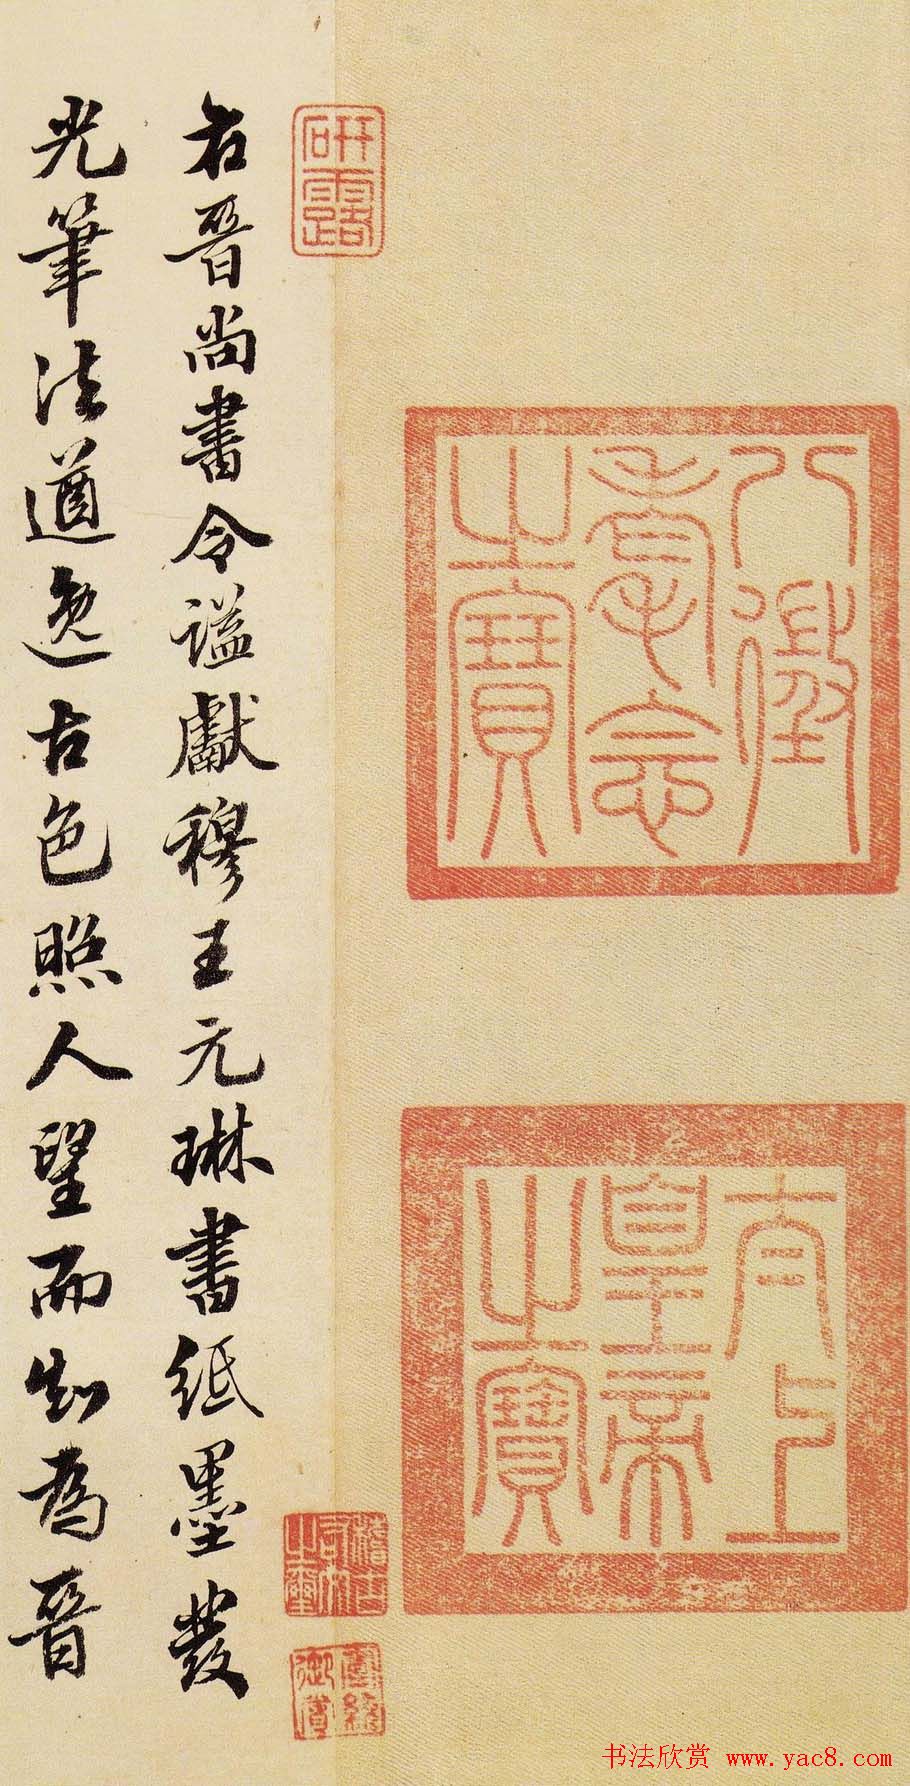 八徵
耄念
之寶
太上
皇帝
之寶
研露
稽古
右文
之璽
右晉尚書令諡獻穆王元琳書紙墨發
光筆法遒逸古色照人望而知為晉
书法欣赏 www.yac8.com